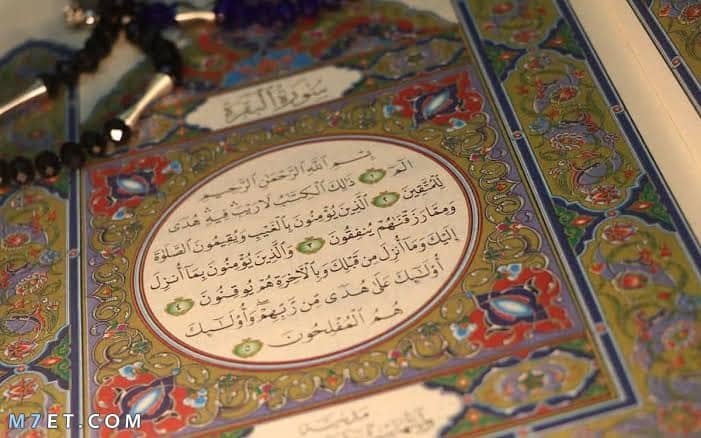 سورة البقرة
بِسْمِ اللَّهِ الرَّحْمَٰنِ الرَّحِيمِ
الٓمٓ ١ ذَٰلِكَ الْكِتَٰبُ لَا رَيْبَ فِيهِ هُدًى
لِّلْمُتَّقِينَ ٢ الَّذِينَ يُؤْمِنُونَ بِالْغَيْبِ وَيُقِيمُونَ الصَّلَوٰةَ
وَمِمَّا رَزَقْنَٰهُمْ يُنفِقُونَ ٣ وَالَّذِينَ يُؤْمِنُونَ بِمَا أُنزِلَ
إِلَيْكَ وَمَا أُنزِلَ مِن قَبْلِكَ وَبِالْءَاخِرَةِ هُمْ يُوقِنُونَ ٤
أُولَٰئِكَ عَلَىٰ هُدًى مِّن رَّبِّهِمْ ۖ وَأُولَٰئِكَ
هُمُ الْمُفْلِحُونَ ٥
مدنية
M7ET.COM